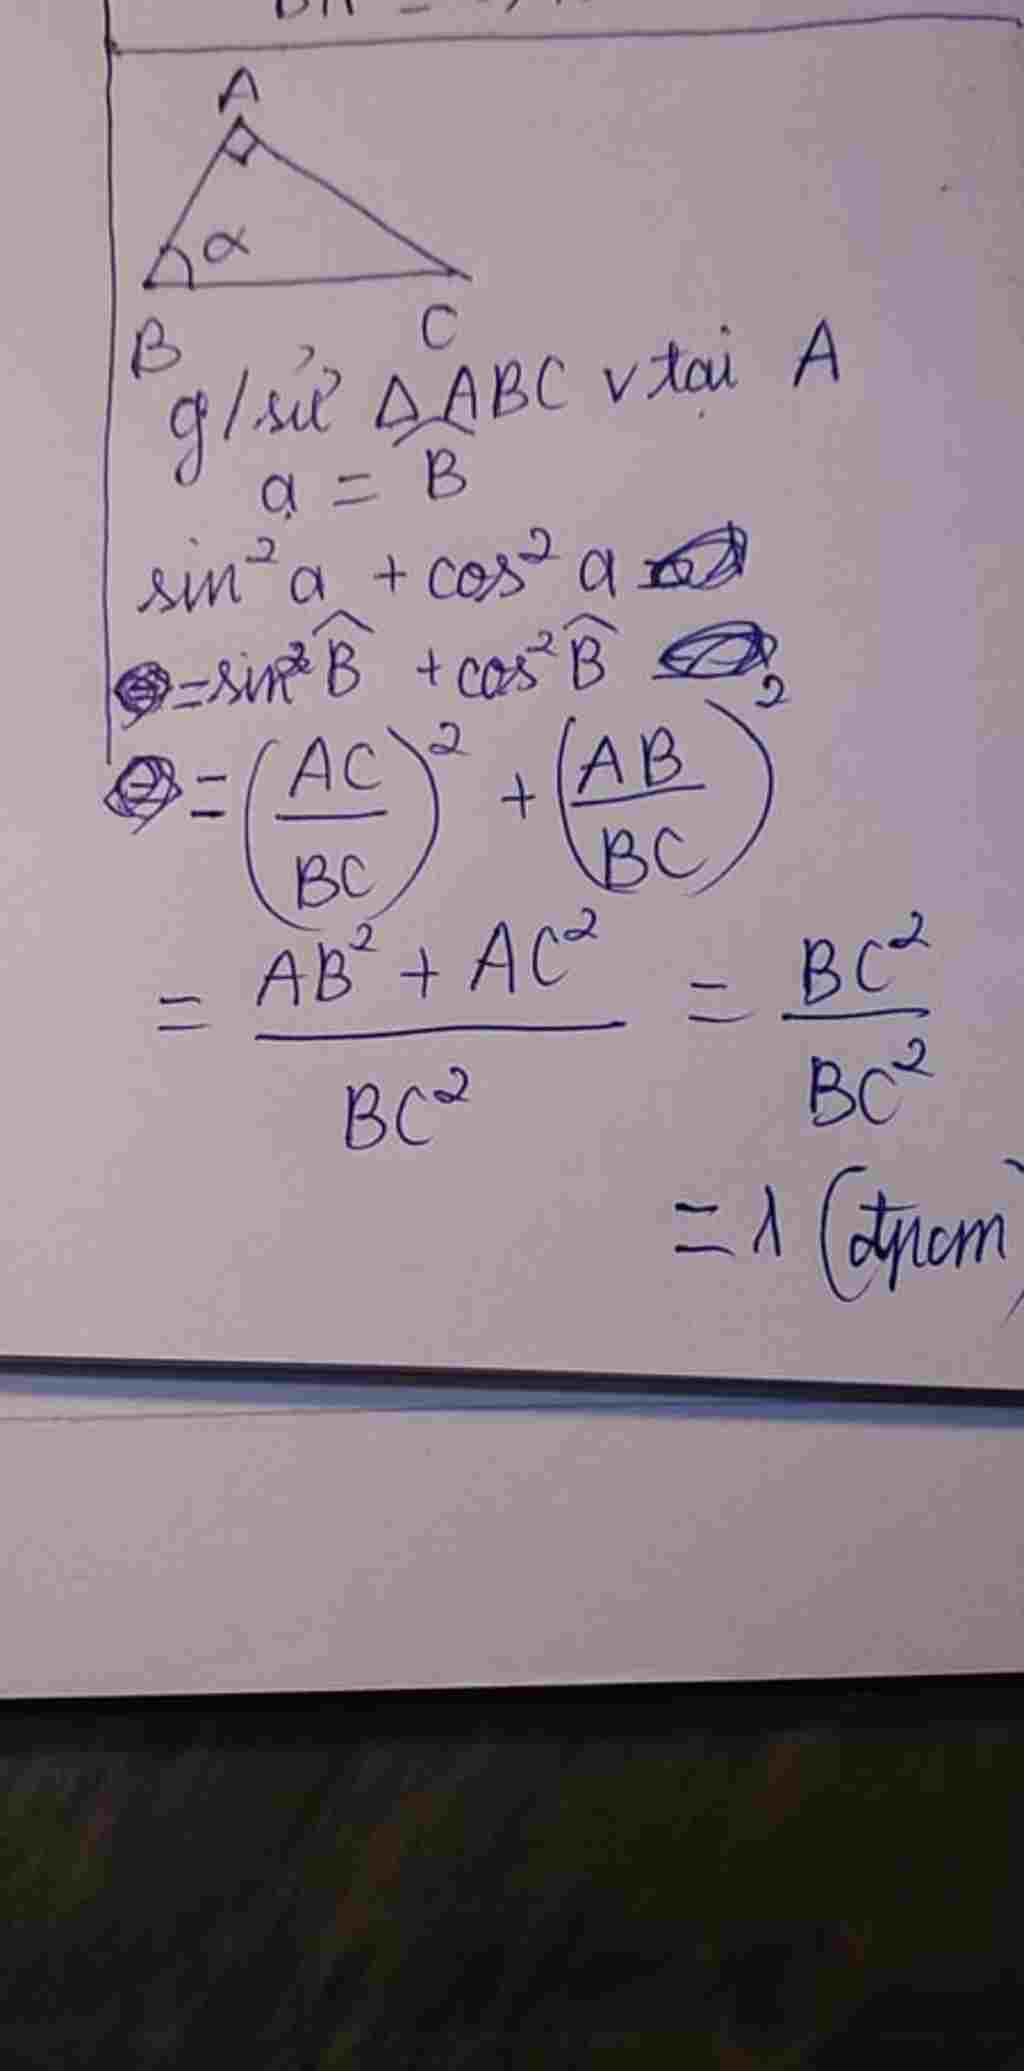 A
α
B C
g/sử Δ ABC v tại A
a = B̂
sin² a + cos² a
= sin² B̂ + cos² B̂
= (AC/BC)² + (AB/BC)²
= (AB² + AC²)/BC² = BC²/BC²
= 1 (đpcm)